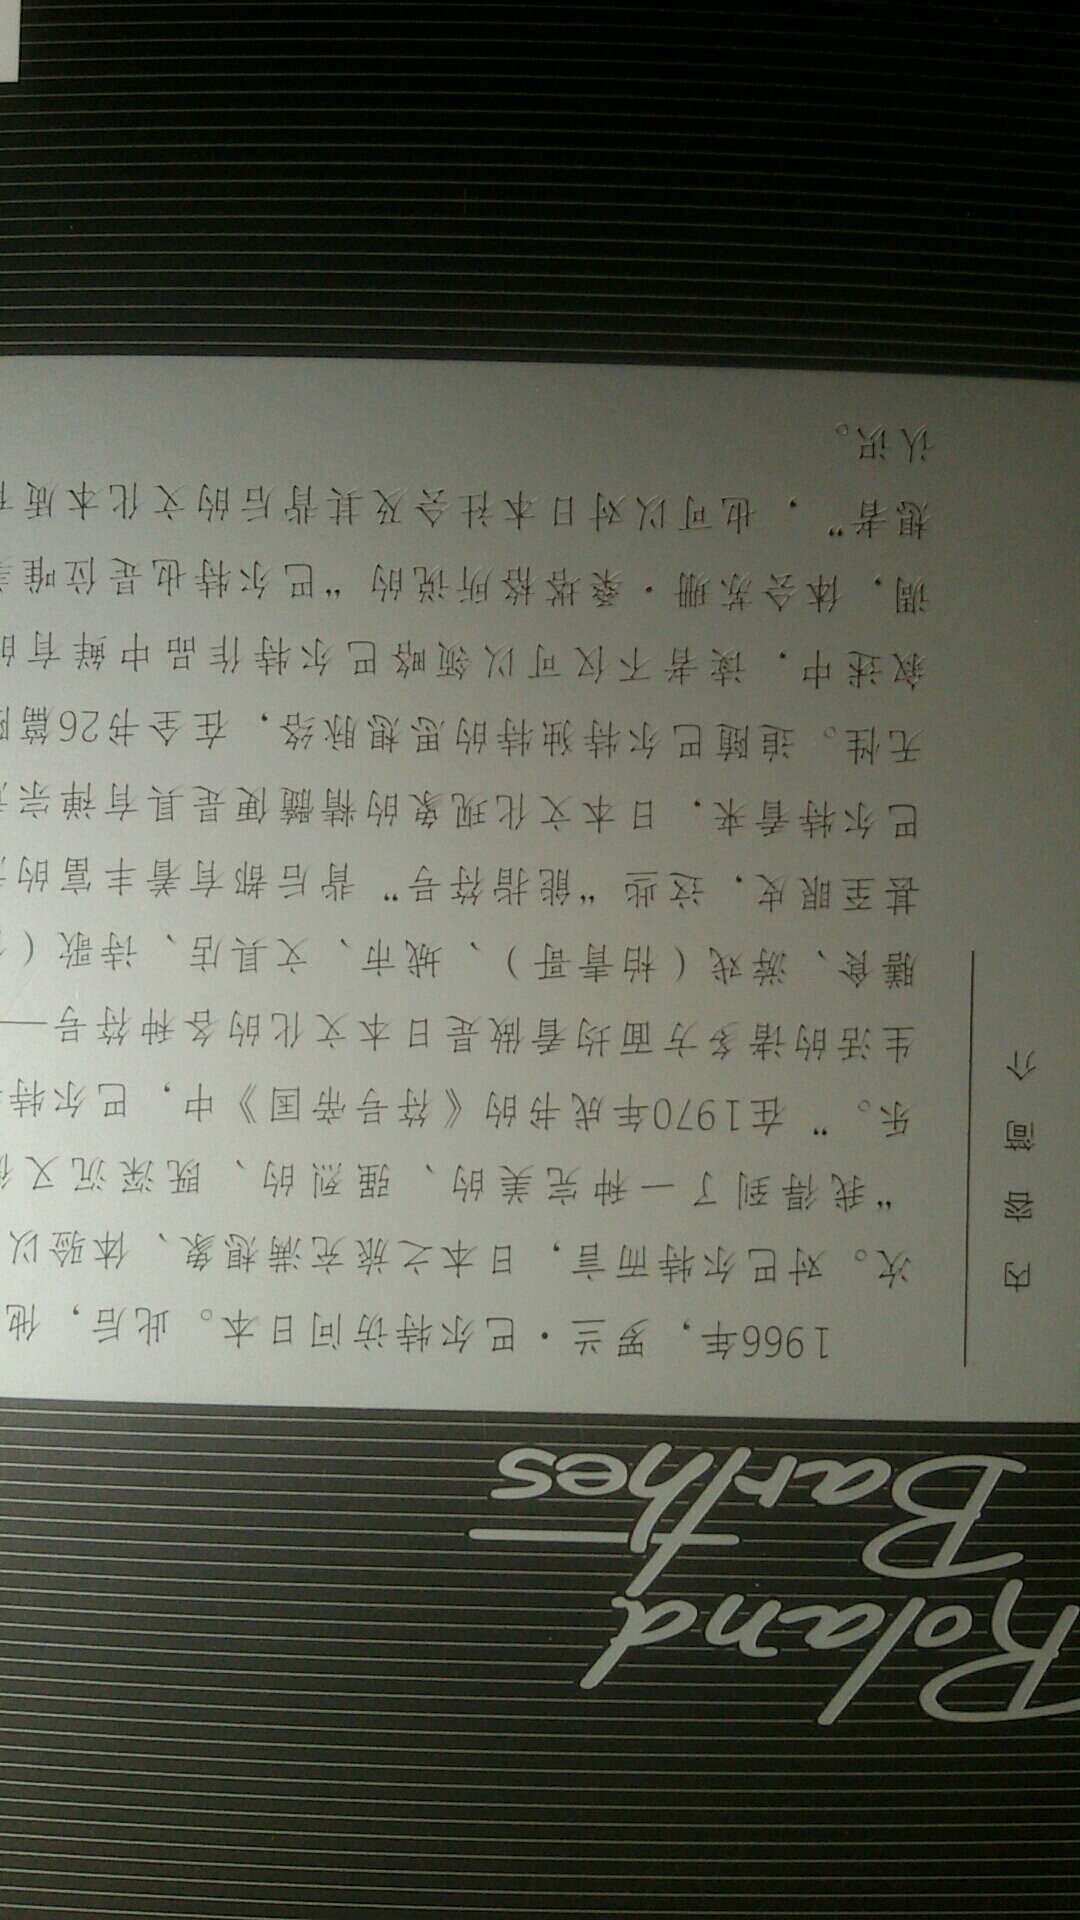 Roland
Barthes
内容简介
1966年，罗兰·巴尔特访问日本。此后，他
次。对巴尔特而言，日本之旅充满想象、体验以
“我得到了一种完美的、强烈的、既深沉又
乐。”在1970年成书的《符号帝国》中，巴尔特
生活的诸多方面均看做是日本文化的各种符号——
膳食、游戏（柏青哥）、城市、文具店、诗歌（
甚至眼皮，这些“能指符号”背后都有着丰富的
巴尔特看来，日本文化现象的精髓便是具有禅宗
无性。追随巴尔特独特的思想脉络，在全书26篇
叙述中，读者不仅可以领略巴尔特作品中鲜有的
调，体会苏珊·桑塔格所说的“巴尔特也是位唯
想者”，也可以对日本社会及其背后的文化本质
认识。